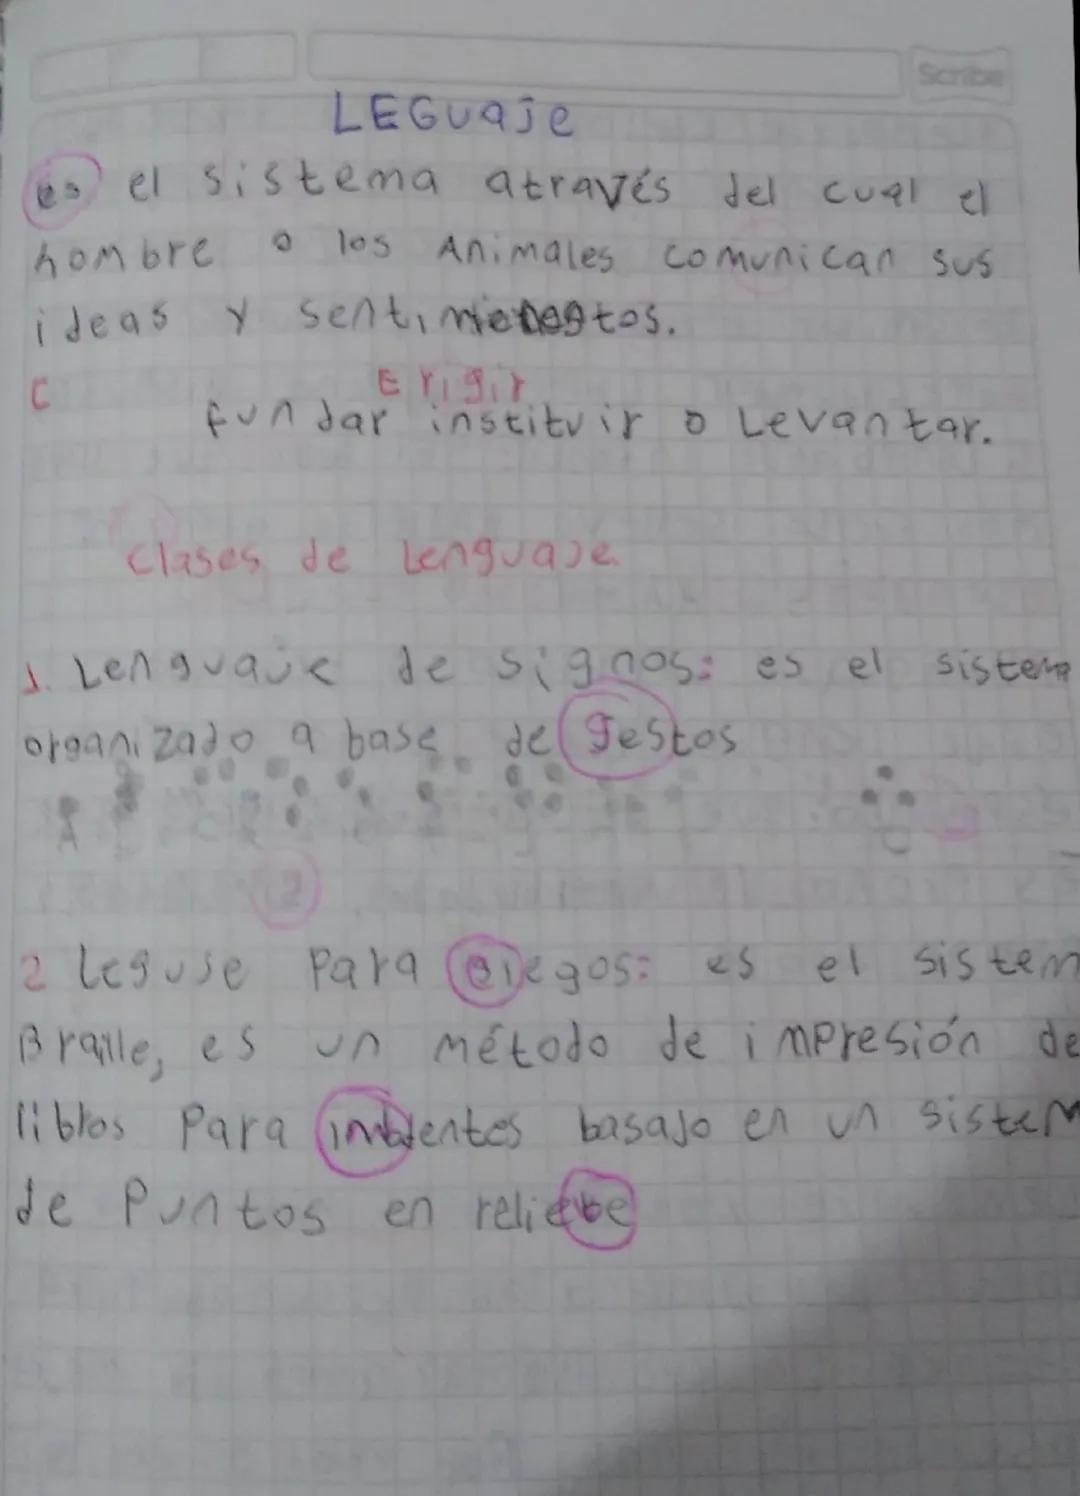 Scribe
LEGUaje
es el sistema através del cual el
hombre o los Animales comunican sus
ideas y
C Erigir
fundar instituir o Levantar.
clases de Lenguaje.
1. Lenguaje de signos: es el sistema
organizado a base de gestos
A
C
2
2 leguje Para ciegos: es el sistem
Braille, es un método de impresión de
libros Para basado en un sistem
de Puntos en